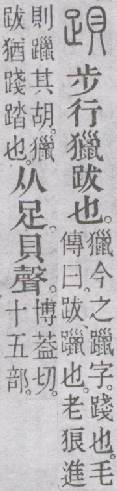 𧿁步行獵跋也。獵今之躐字。踐也。毛
傳曰。跋躐也。老狼進
則躐其胡。獵
跋猶踐踏也。从足。貝聲。博葢切。
十五部。